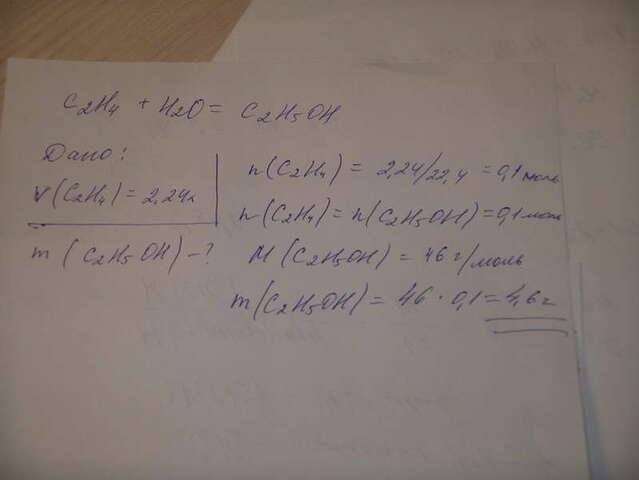 C₂H₄ + H₂O = C₂H₅OH
Дано:
V(C₂H₄) = 2,24л
m (C₂H₅OH) - ?
n(C₂H₄) = 2,24/22,4 = 0,1 моль
n(C₂H₄) = n(C₂H₅OH) = 0,1 моль
M(C₂H₅OH) = 46 г/моль
m(C₂H₅OH) = 46 · 0,1 = 4,6 г